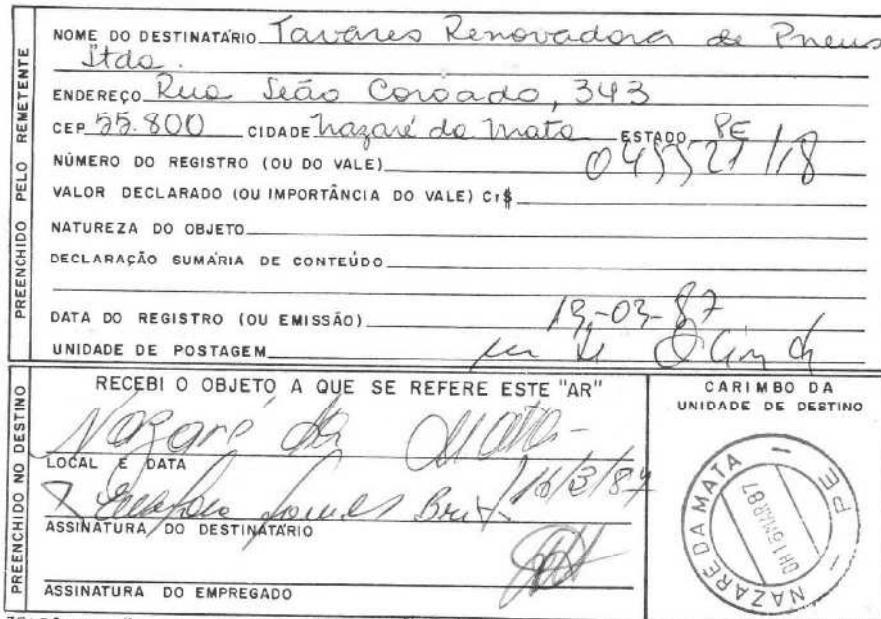 PREENCHIDO PELO REMETENTE
NOME DO DESTINATÁRIO Tavares Renovadora de Pneus
Ltda.
ENDEREÇO Rua Leão Coroado, 343
CEP 55.800 CIDADE Nazaré da Mata ESTADO PE
NÚMERO DO REGISTRO (OU DO VALE) 045521/18
VALOR DECLARADO (OU IMPORTÂNCIA DO VALE) Cr$
NATUREZA DO OBJETO
DECLARAÇÃO SUMÁRIA DE CONTEÚDO
DATA DO REGISTRO (OU EMISSÃO) 13-03-87
UNIDADE DE POSTAGEM
PREENCHIDO NO DESTINO
RECEBI O OBJETO A QUE SE REFERE ESTE "AR"
Nazaré da Mata
LOCAL E DATA
Gomes Brito 16/3/87
ASSINATURA DO DESTINATÁRIO
ASSINATURA DO EMPREGADO
CARIMBO DA
UNIDADE DE DESTINO
NAZARÉ DA MATA — PE —
16MAR87